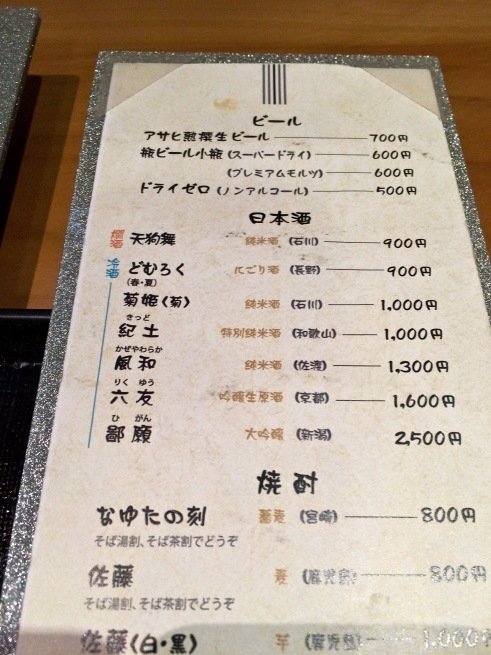 ビール
アサヒ熟撰生ビール 700円
瓶ビール小瓶(スーパードライ) 600円
(プレミアムモルツ) 600円
ドライゼロ(ノンアルコール) 500円
日本酒
燗酒 天狗舞 純米酒 (石川) 900円
冷酒 どむろく (春・夏) にごり酒 (長野) 900円
菊姫(菊) 純米酒 (石川) 1,000円
きっど
紀土 特別純米酒 (和歌山) 1,000円
かぜやわらか
風和 純米酒 (佐渡) 1,300円
りくゆう
六友 吟醸生原酒 (京都) 1,600円
ひがん
鄙願 大吟醸 (新潟) 2,500円
焼酎
なゆたの刻 蕎麦 (宮崎) 800円
そば湯割、そば茶割でどうぞ
佐藤 麦 (鹿児島) 800円
そば湯割、そば茶割でどうぞ
佐藤(白・黒) 芋 (鹿児島) 1,000円